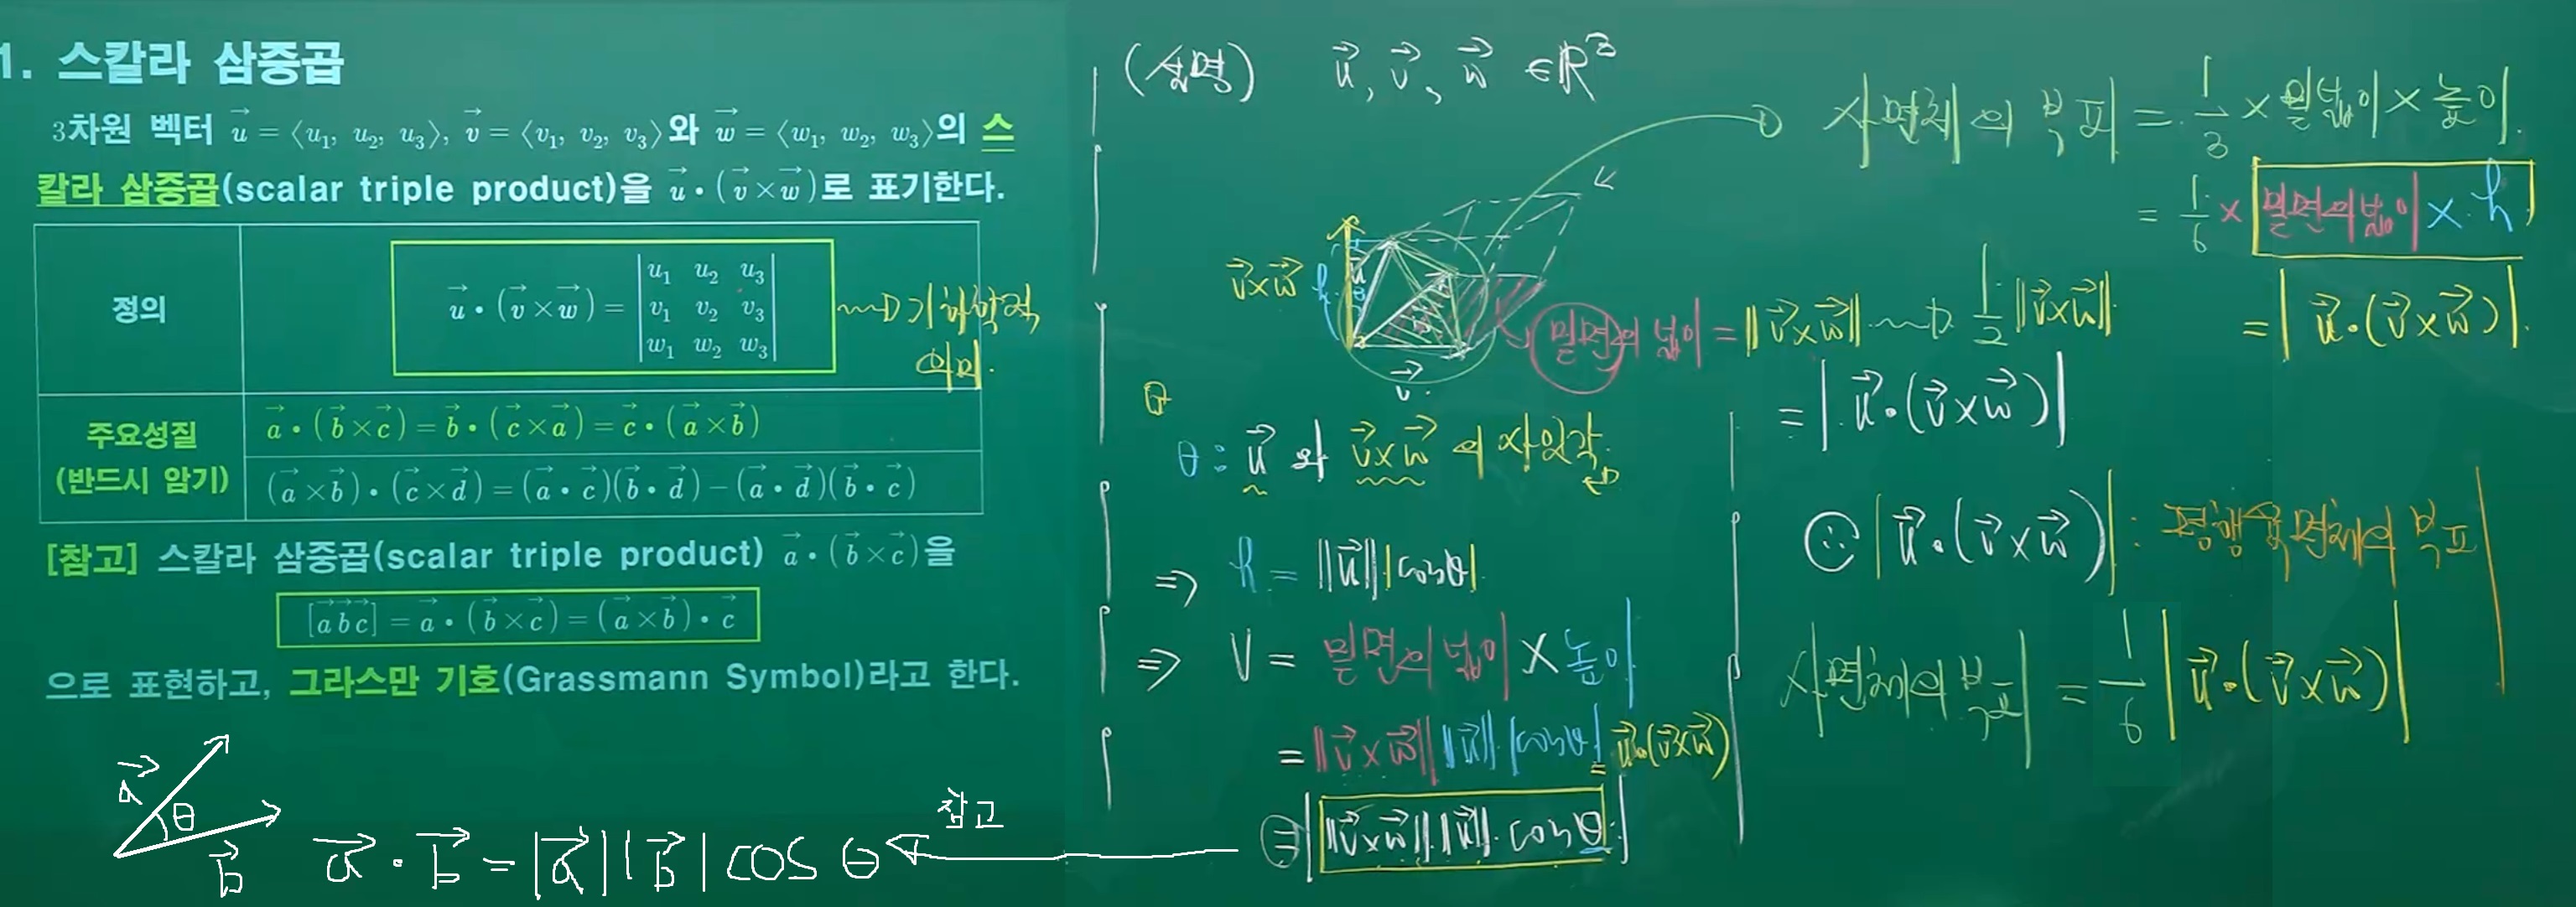 1. 스칼라 삼중곱
3차원 벡터 u⃗ = ⟨u₁, u₂, u₃⟩, v⃗ = ⟨v₁, v₂, v₃⟩와 w⃗ = ⟨w₁, w₂, w₃⟩의 스
칼라 삼중곱(scalar triple product)을 u⃗ • (v⃗ × w⃗)로 표기한다.
정의
u⃗ • (v⃗ × w⃗) = | u₁ u₂ u₃ |
| v₁ v₂ v₃ |
| w₁ w₂ w₃ |
기하학적
의미.
주요성질
(반드시 암기)
a⃗ • (b⃗ × c⃗) = b⃗ • (c⃗ × a⃗) = c⃗ • (a⃗ × b⃗)
(a⃗ × b⃗) • (c⃗ × d⃗) = (a⃗ • c⃗)(b⃗ • d⃗) − (a⃗ • d⃗)(b⃗ • c⃗)
[참고] 스칼라 삼중곱(scalar triple product) a⃗ • (b⃗ × c⃗)을
[a⃗ b⃗ c⃗] = a⃗ • (b⃗ × c⃗) = (a⃗ × b⃗) • c⃗
으로 표현하고, 그라스만 기호(Grassmann Symbol)라고 한다.
a⃗
θ
b⃗
a⃗ · b⃗ = |a⃗| |b⃗| cos θ
참고
(설명) u⃗, v⃗, w⃗ ∈ ℝ³
v⃗×w⃗
h
u⃗
θ
w⃗
v⃗
밑면의 넓이 = ‖v⃗×w⃗‖ ⇝ 1/2 ‖v⃗×w⃗‖
θ
θ : u⃗ 와 v⃗×w⃗ 의 사잇각
⇒ h = ‖u⃗‖ |cosθ|
⇒ V = 밑면의 넓이 × 높이
= ‖v⃗×w⃗‖ ‖u⃗‖ |cosθ|
= u⃗•(v⃗×w⃗)
= | ‖v⃗×w⃗‖ ‖u⃗‖ cosθ |
= | u⃗•(v⃗×w⃗) |
사면체의 부피 = 1/3 × 밑넓이 × 높이
= 1/6 × 밑면의 넓이 × h
= | u⃗•(v⃗×w⃗) |
∴ | u⃗•(v⃗×w⃗) | : 평행육면체의 부피
사면체의 부피 = 1/6 | u⃗•(v⃗×w⃗) |